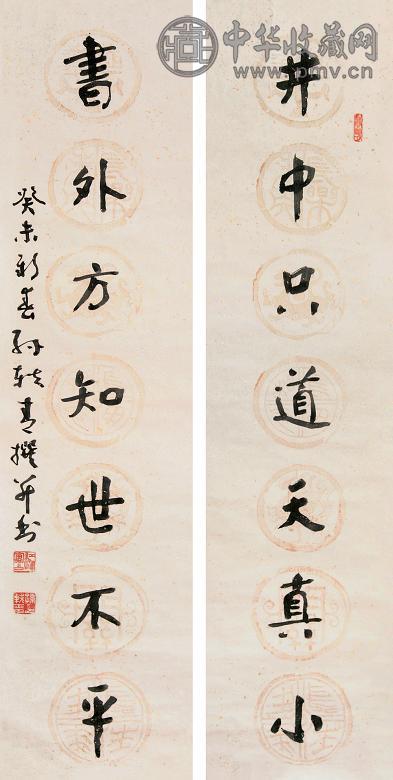 井中只道天真小
書外方知世不平
癸未新春孙轶青撰并书
中华收藏网
www.pmv.cn